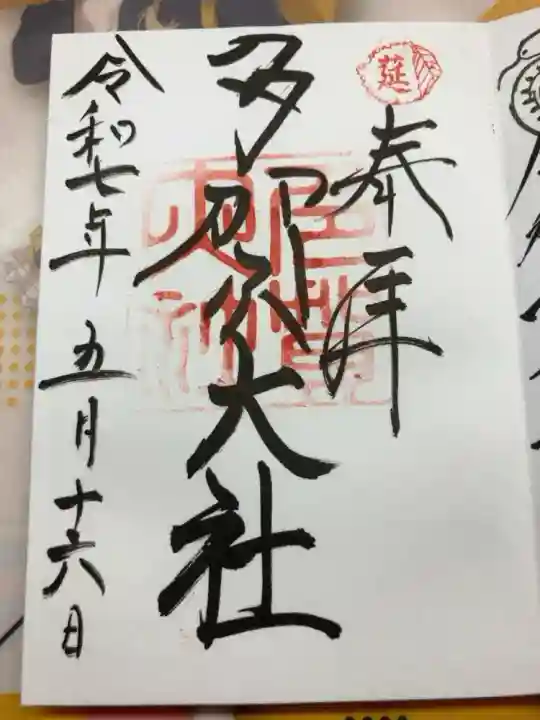 延
奉拝
多賀大社
令和七年五月十六日